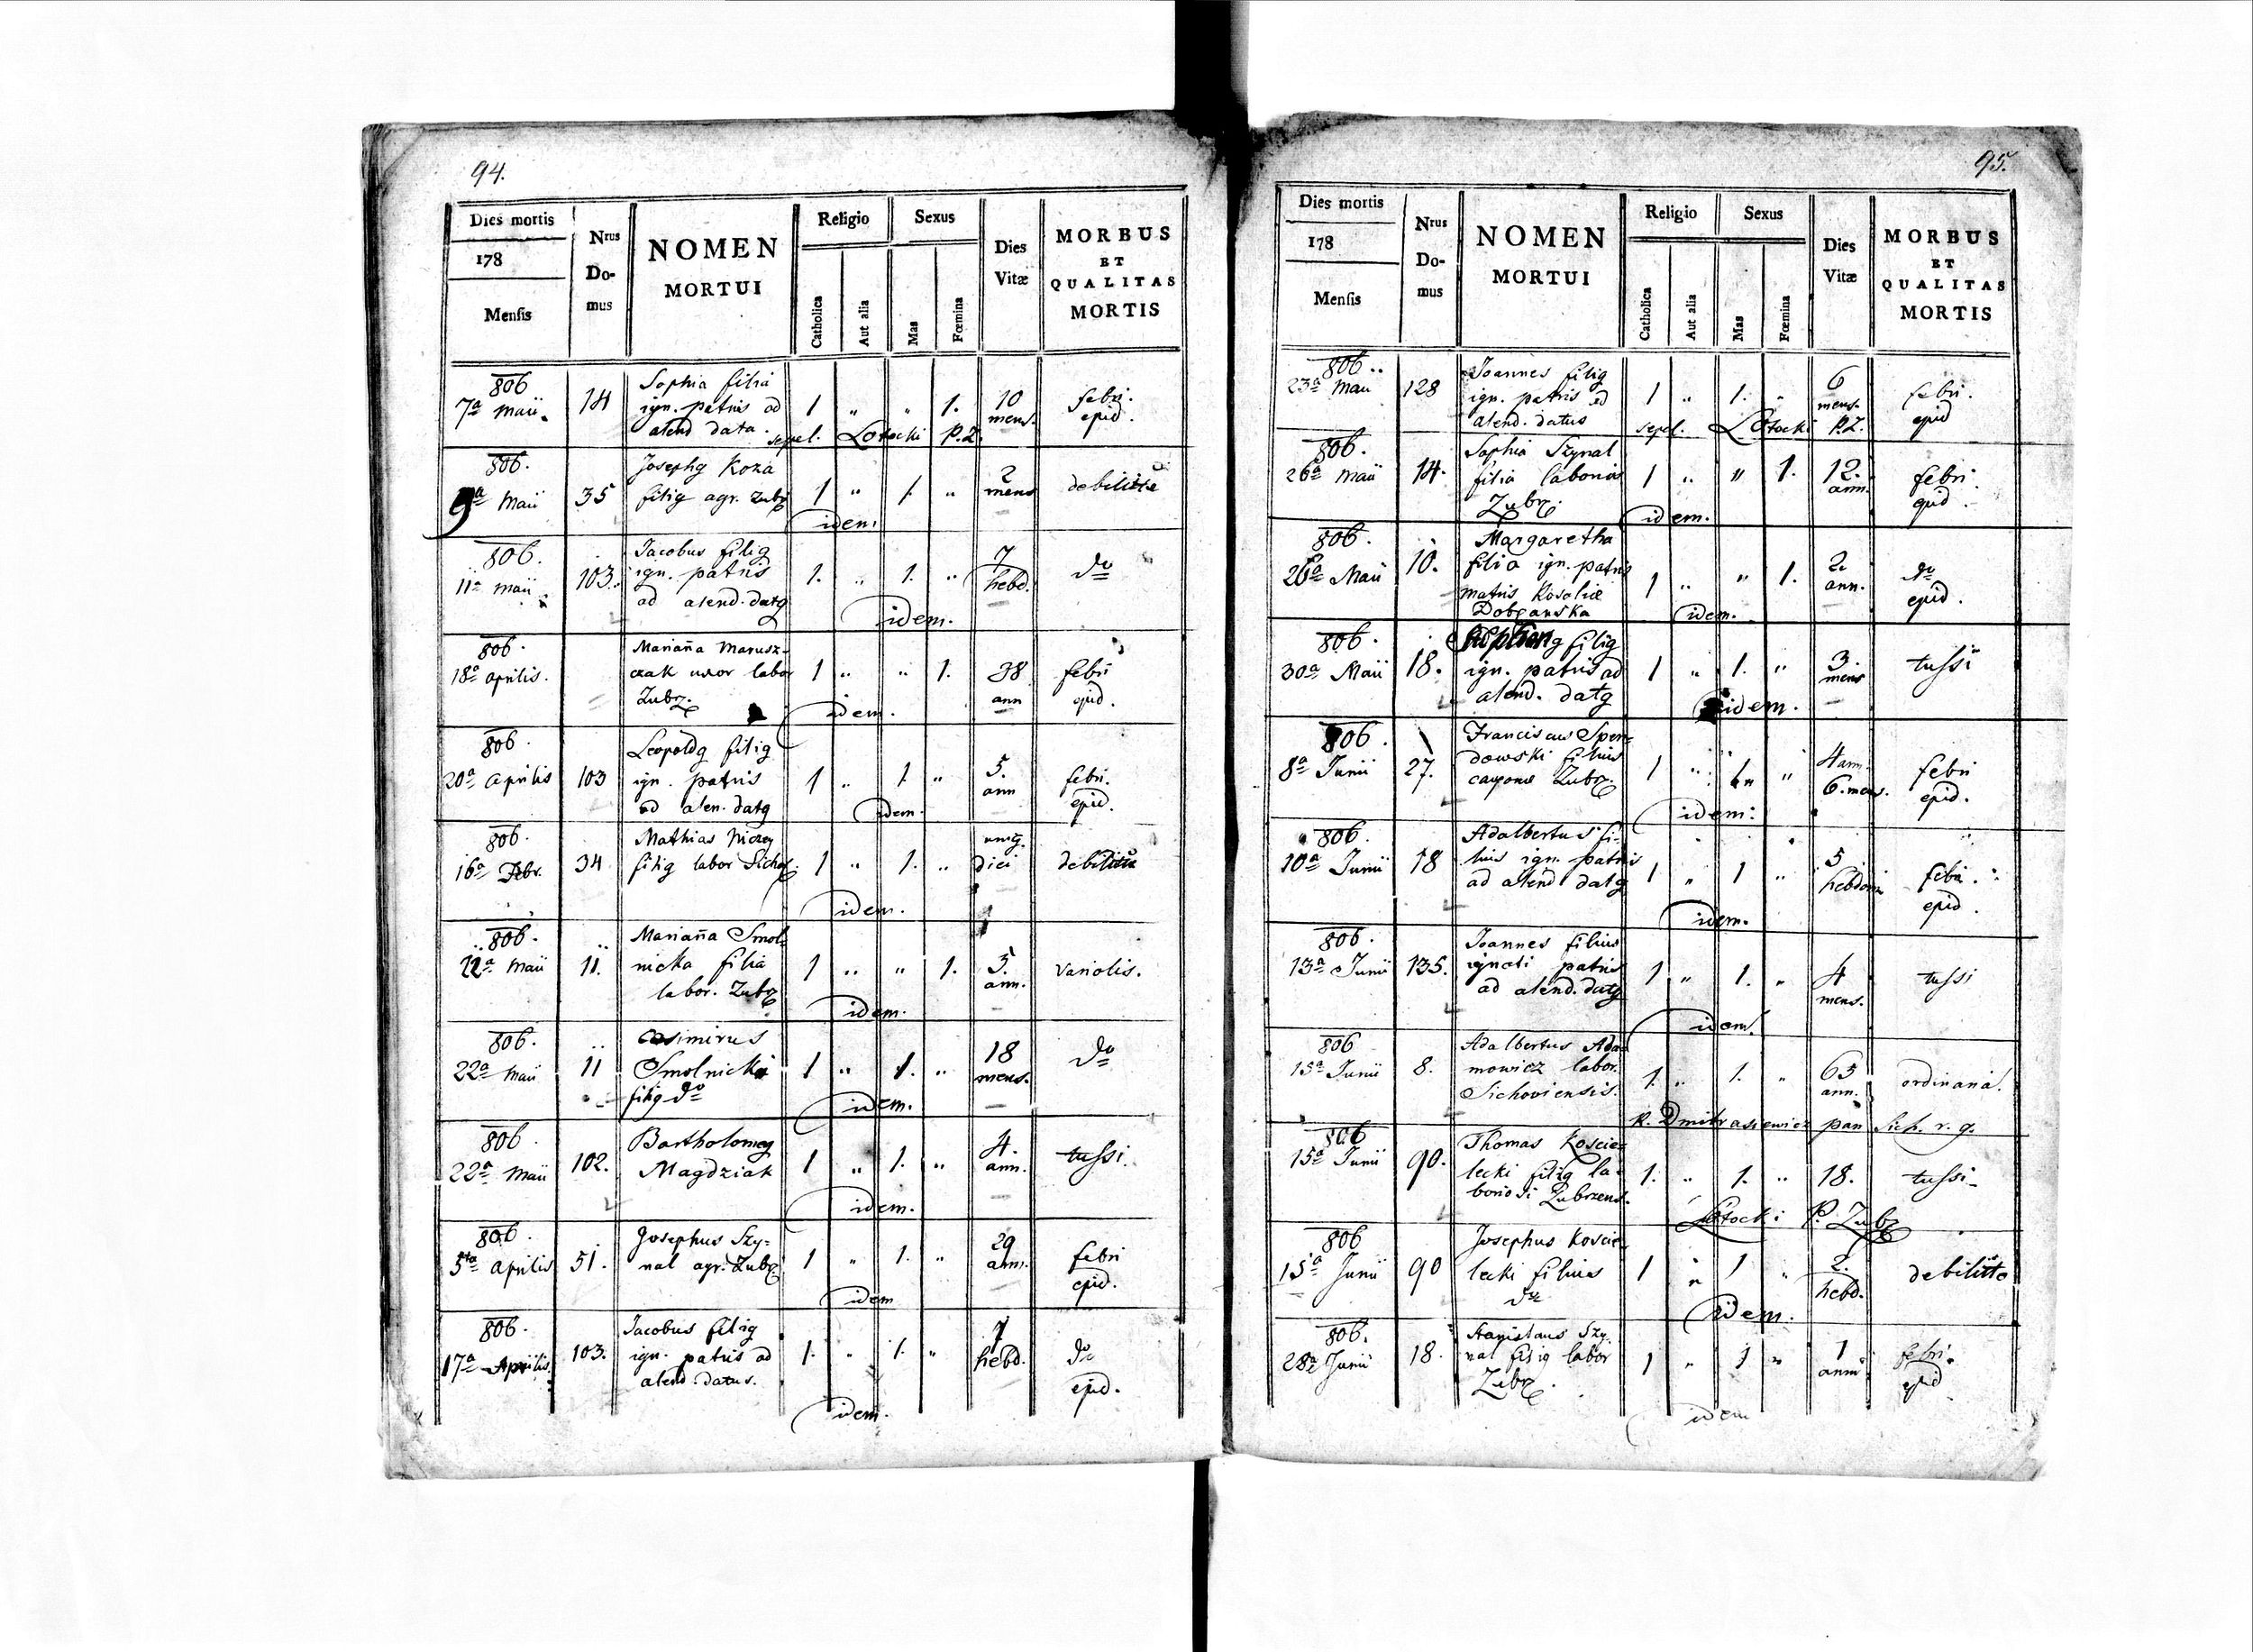 94.
Dies mortis
178
Mensis
Nrus
Do-
mus
NOMEN
MORTUI
Religio
Catholica
Aut alia
Sexus
Mas
Fœmina
Dies
Vitæ
MORBUS
ET
QUALITAS
MORTIS
806
7a Maii. 14 Sophia filia
ign. patris ad
alend data. 1 " " 1. 10
mens. febri.
epid.
sepel. Lotocki P.Z.
806.
9a Maii 35 Josephg Koza
filig agr. Zubrz 1 " 1. " 2
mens debilitte
idem
806.
11a Maii 103. Jacobus filig
ign. patris
ad alend. datg 1. " 1. " 7
hebd. do
idem.
806.
18a aprilis. Marianna Marusz-
czak uxor labor
Zubrz. 1 " " 1. 38
ann febri
epid.
idem.
806.
20a aprilis 103 Leopoldg filig
ign. patris
ad alen. datg 1 " 1. " 5.
ann febri.
epid.
idem.
806.
16a Febr. 34 Mathias
filig labor Sichov. 1 " 1. " unig.
diei debilitte
idem.
806.
22a Maii 11. Marianna Smol-
nicka filia
labor. Zubrz 1 " " 1. 5.
ann. variolis.
idem.
806.
22a Maii 11 Casimirus
Smolnicki
filig do 1 " 1. " 18
mens. do
idem.
806.
22a Maii 102. Bartholomeg
Magdziak 1 " 1. " 4.
ann. tussi.
idem.
806.
5ta aprilis 51. Josephus Szy-
nal agr. Zubrz. 1 " 1. " 29
ann. febri
epid.
idem
806.
17a Aprilis. 103. Jacobus filig
ign. patris ad
alend. datus. 1. " 1. " 7
hebd. do
epid.
idem.
95.
Dies mortis
178
Mensis
Nrus
Do-
mus
NOMEN
MORTUI
Religio
Catholica
Aut alia
Sexus
Mas
Fœmina
Dies
Vitæ
MORBUS
ET
QUALITAS
MORTIS
806.
23a Maii 128 Joannes filig
ign. patris ad
alend. datus 1 " 1. " 6
mens. febri.
epid
sepel. Lotocki P.Z.
806.
26a Maii 14. Sophia Szynal
filia laboriosi
Zubrz. 1 " " 1. 12.
ann. febri.
epid.
idem.
806.
26a Maii 10. Margaretha
filia ign. patris
matris Rosaliæ
Dobrzanska 1 " " 1. 2.
ann. do
epid.
idem.
806.
30a Maii 18. filig
ign. patris ad
alend. datg 1 " 1. " 3.
mens tussi
idem.
806.
8a Junii 27. Franciscus Spen-
dowski filius
cauponis Zubrz. 1 " 1. " 4 ann.
6. mens. febri
epid.
idem.
806.
10a Junii 18 Adalbertus fi-
lius ign. patris
ad alend datg 1 " 1 " 5
hebdom febri.
epid.
idem.
806.
13a Junii 135. Joannes filius
ignoti patris
ad alend. datg 1 " 1. " 4
mens. tussi
idem.
806
15a Junii 8. Adalbertus Ada-
mowicz labor.
Sichoviensis. 1. " 1. " 65
ann. ordinaria.
R. Dmitrasiewicz par. Sich. r. g.
806
15a Junii 90. Thomas Koscie-
lecki filig la-
boriosi Zubrzens. 1. " 1. " 18. tussi
Lotocki P. Zubrz
806
15a Junii 90 Josephus Koscie-
lecki filius
do 1 " 1 " 2.
hebd. debilitte
idem.
806.
28a Junii 18. Stanislaus Szy-
nal filig labor
Zubrz. 1 " 1 " 1
anni febri.
epid
idem